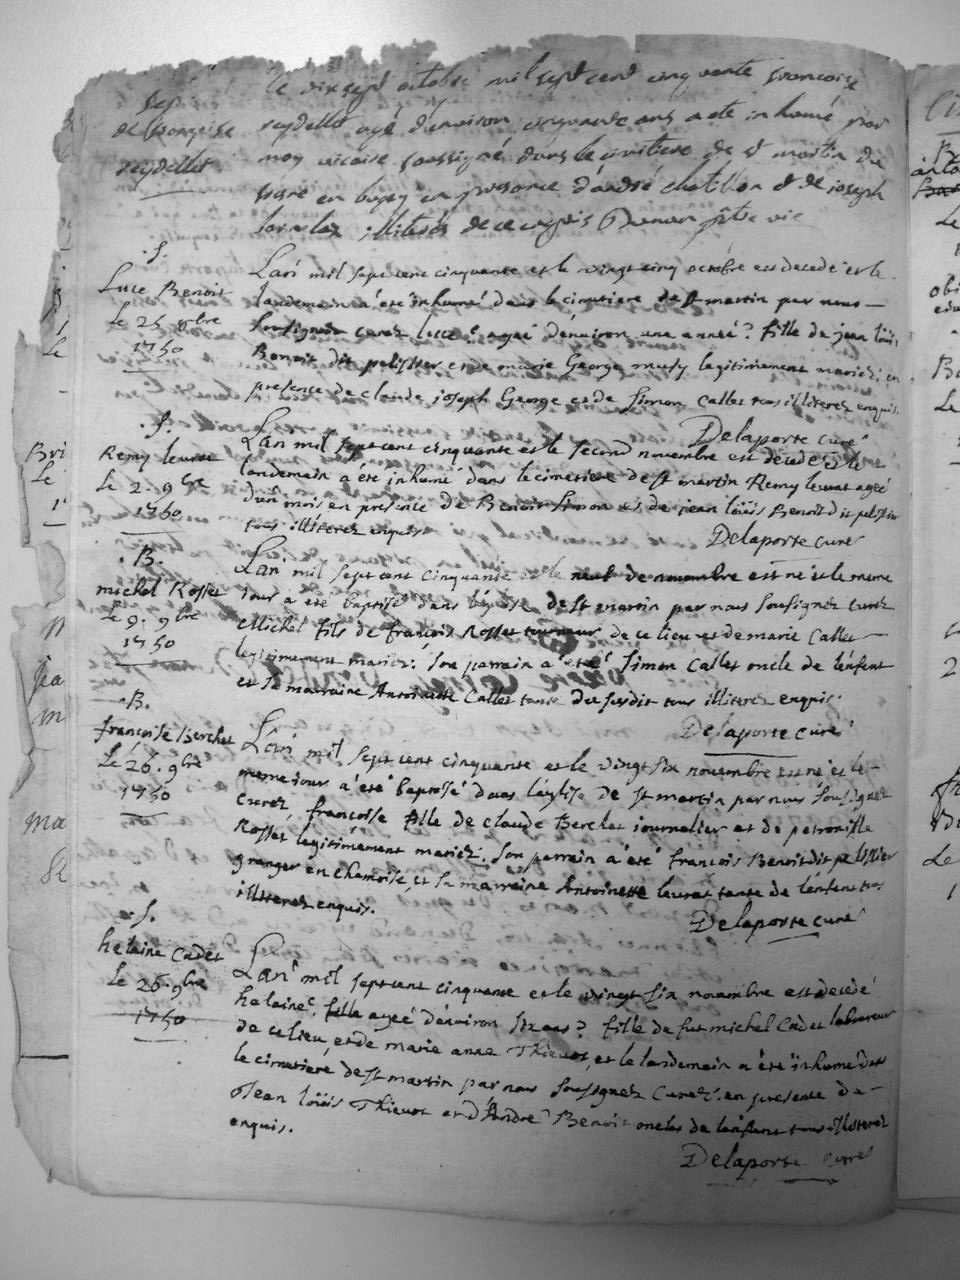 sep
de francoise
reydellet
le dixsept octobre mil sept cent cinquante francoise
reydellet agé denviron cinquante ans a ete inhumé par
moy vicaire soussigné dans le cimitiere de st martin de
en bugey en presance d'andré chatillon et de joseph
illiterés de ce enquis vic
. S.
Luce Benoit
Le 25 8bre
1750
Lan mil sept cent cinquante et le vingt cinq octobre est decedé et le
landemain a été inhumé dans le cimetiere de St martin par nous
soussignez curez Luce agée denviron une année? fille de jean loüis
Benoit dit pelissier et de marie George musy legitimement mariez; en
presence de claude joseph George et de Simon Callet tous illiterez enquis.
Delaporte curé
. S.
Remy leurat
Le 2. 9bre
1750
Lan mil sept cent cinquante et le second novembre est decedé et le
landemain a été inhumé dans le cimetiere de St martin Remy leurat ageé
d'un mois en presence de Benoit Simon et de jean loüis Benoit dit pelissier
tous illiterez enquis
Delaporte curé
. B.
michel Rosset
Le 9. 9bre
1750
Lan mil sept cent cinquante et le neuf de novembre est né et le meme
jour a eté baptisé dans léglise de St martin par nous soussignez curez
Michel fils de françois Rosset tourneur de ce lieu et de marie Callet
legitimement mariez: son parrain a été Simon Callet oncle de lénfent
et sa marraine Antoinette Callet tante du susdit tous illiterez enquis
Delaporte curé
. B.
françoise Berchet
Le 26. 9bre
1750
Lan mil sept cent cinquante et le vingt six novembre est né et le
meme jour a été baptisé dans léglise de St martin par nous soussignez
Curez françoise fille de claude Berchet journalier et de petronille
Rosset legitimément mariez; son parrain a été françois Benoit dit pelissier
granger en chamoise et sa marraine Antoinette leurat tante de lénfent tous
illiterez enquis.
Delaporte curé
. S.
helaine Cadet
Le 26. 9bre
1750
Lan mil sept cent cinquante et le vingt six novembre est decedé
helaine fille ageé dénviron six ans? fille de fut michel Cadet laboureur
de ce lieu et de marie anne Thievot, et le landemain a été inhumé dans
le cimetiere de St martin par nous soussignez Curez en presence de
Jean loüis Thievot et d'André Benoit oncles de lénfent tous illiterez
enquis.
Delaporte curé